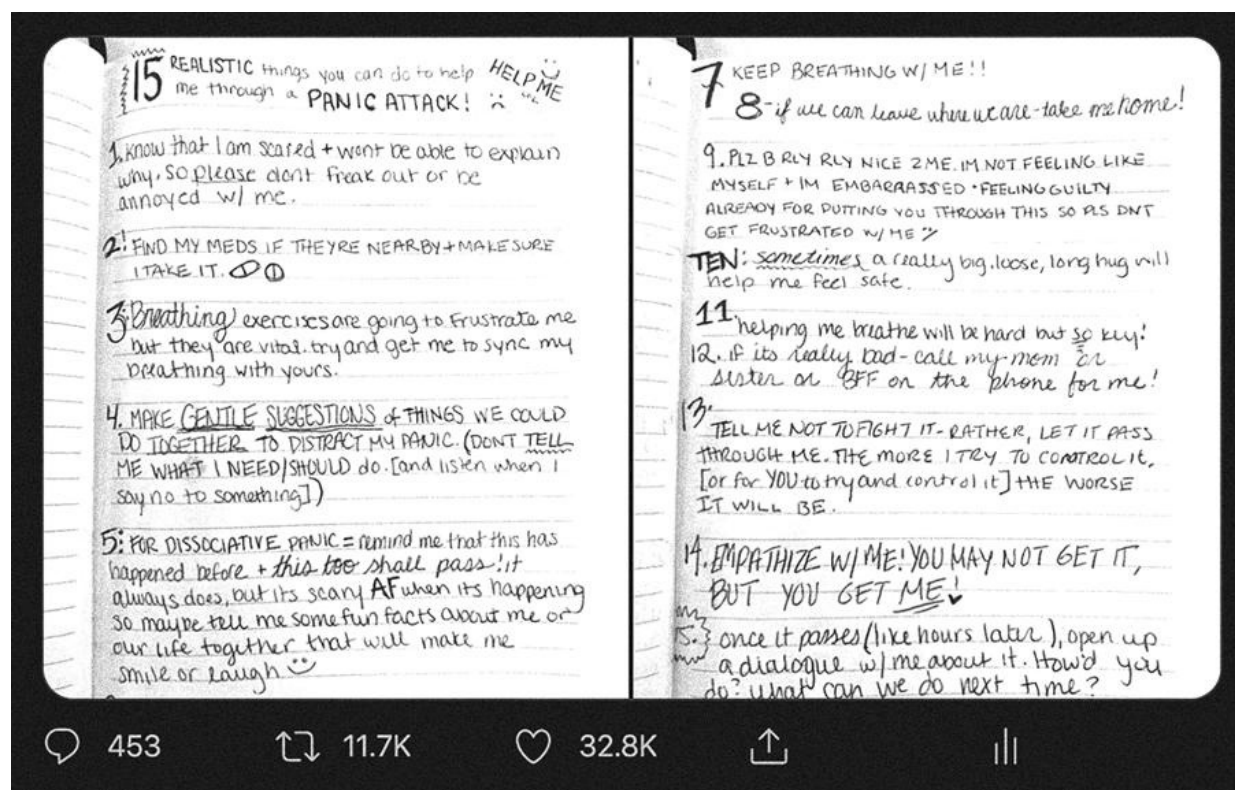 15 REALISTIC things you can do to help HELP
me through a PANIC ATTACK! ME
1. know that I am scared + wont be able to explain
why. so please dont freak out or be
annoyed w/ me.
2: FIND MY MEDS IF THEYRE NEARBY + MAKE SURE
I TAKE IT.
3: Breathing exercises are going to frustrate me
but they are vital. try and get me to sync my
breathing with yours.
4. MAKE GENTLE SUGGESTIONS of THINGS WE COULD
DO TOGETHER TO DISTRACT MY PANIC. (DONT TELL
ME WHAT I NEED/SHOULD do. [and listen when I
say no to something])
5: FOR DISSOCIATIVE PANIC = remind me that this has
happened before + this too shall pass! it
always does, but its scary AF when its happening
so maybe tell me some fun facts about me or
our life together that will make me
smile or laugh
7 KEEP BREATHING W/ ME!!
8 - if we can leave where we are - take me home!
9. PLZ B RLY RLY NICE 2 ME. IM NOT FEELING LIKE
MYSELF + IM EMBARRASSED + FEELING GUILTY
ALREADY FOR PUTTING YOU THROUGH THIS SO PLS DNT
GET FRUSTRATED W/ ME
TEN: sometimes a really big, loose, long hug will
help me feel safe.
11 helping me breathe will be hard but so key!
12. if its really bad - call my mom or
sister or BFF on the phone for me!
13. TELL ME NOT TO FIGHT IT - RATHER, LET IT PASS
THROUGH ME. THE MORE I TRY TO CONTROL IT,
[or for YOU to try and control it] THE WORSE
IT WILL BE.
14. EMPATHIZE W/ ME! YOU MAY NOT GET IT,
BUT YOU GET ME!
15. once it passes (like hours later), open up
a dialogue w/ me about it. How'd you
do? what can we do next time?
453 11.7K 32.8K